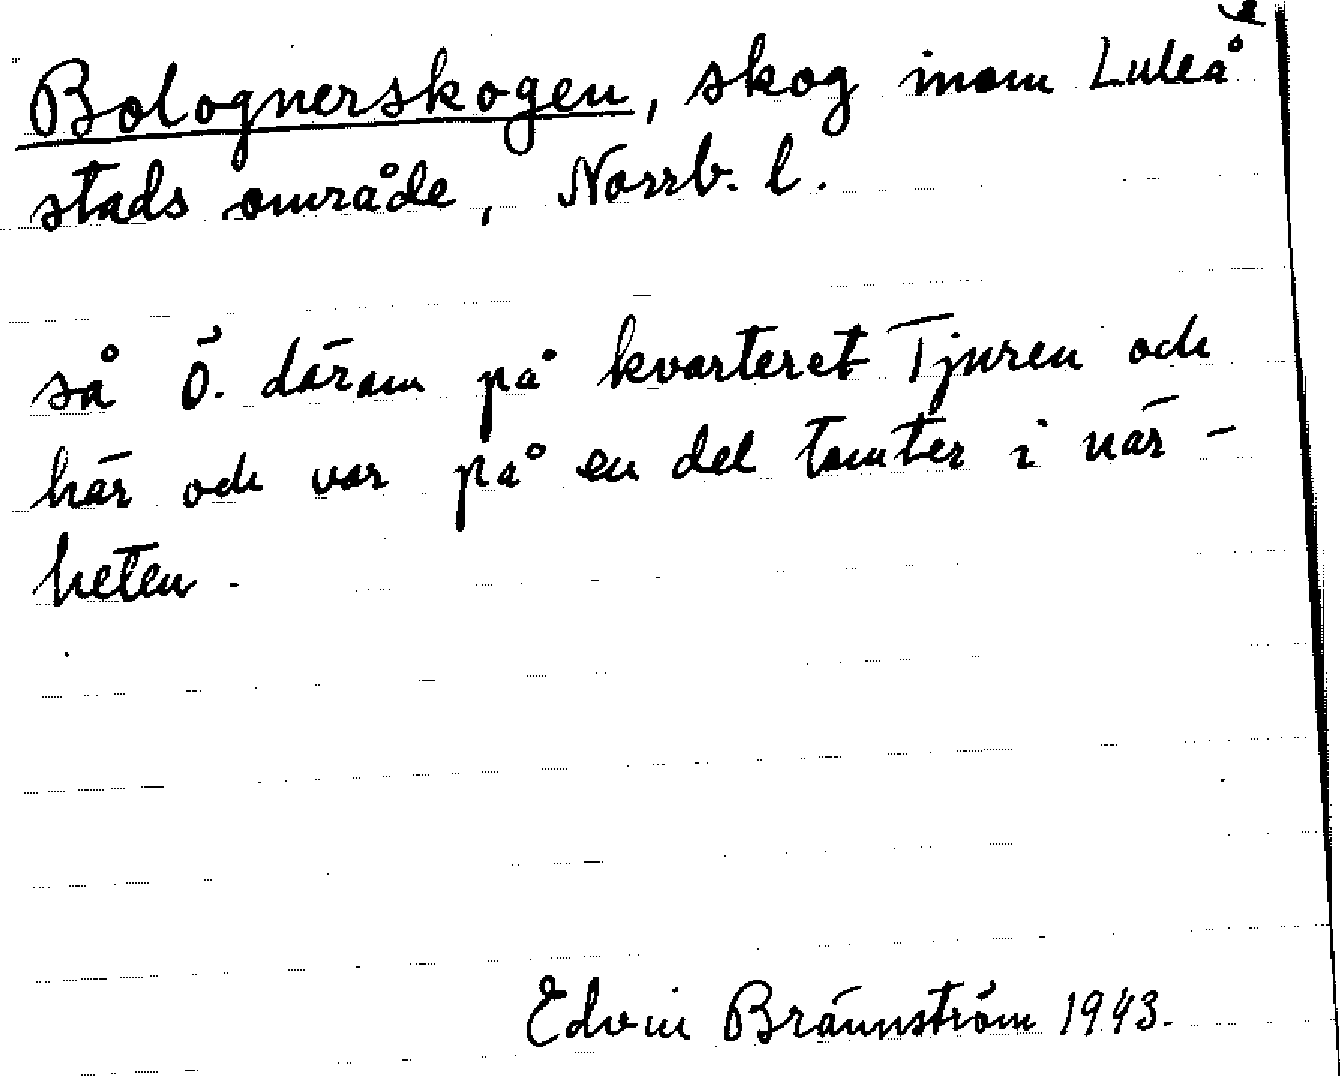 Bolognerskogen, skog inom Luleå
stads område, Norrb. l.
så Ö. därom på kvarteret Tjuren och
här och var på en del tomter i när-
heten.
Edvin Brännström 1943.